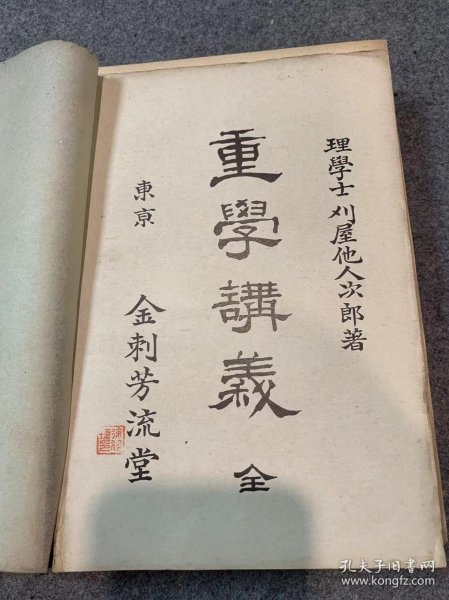 理學士 刈屋他人次郎著
重學講義 全
東京 金刺芳流堂
孔夫子旧书网
www.kongfz.com